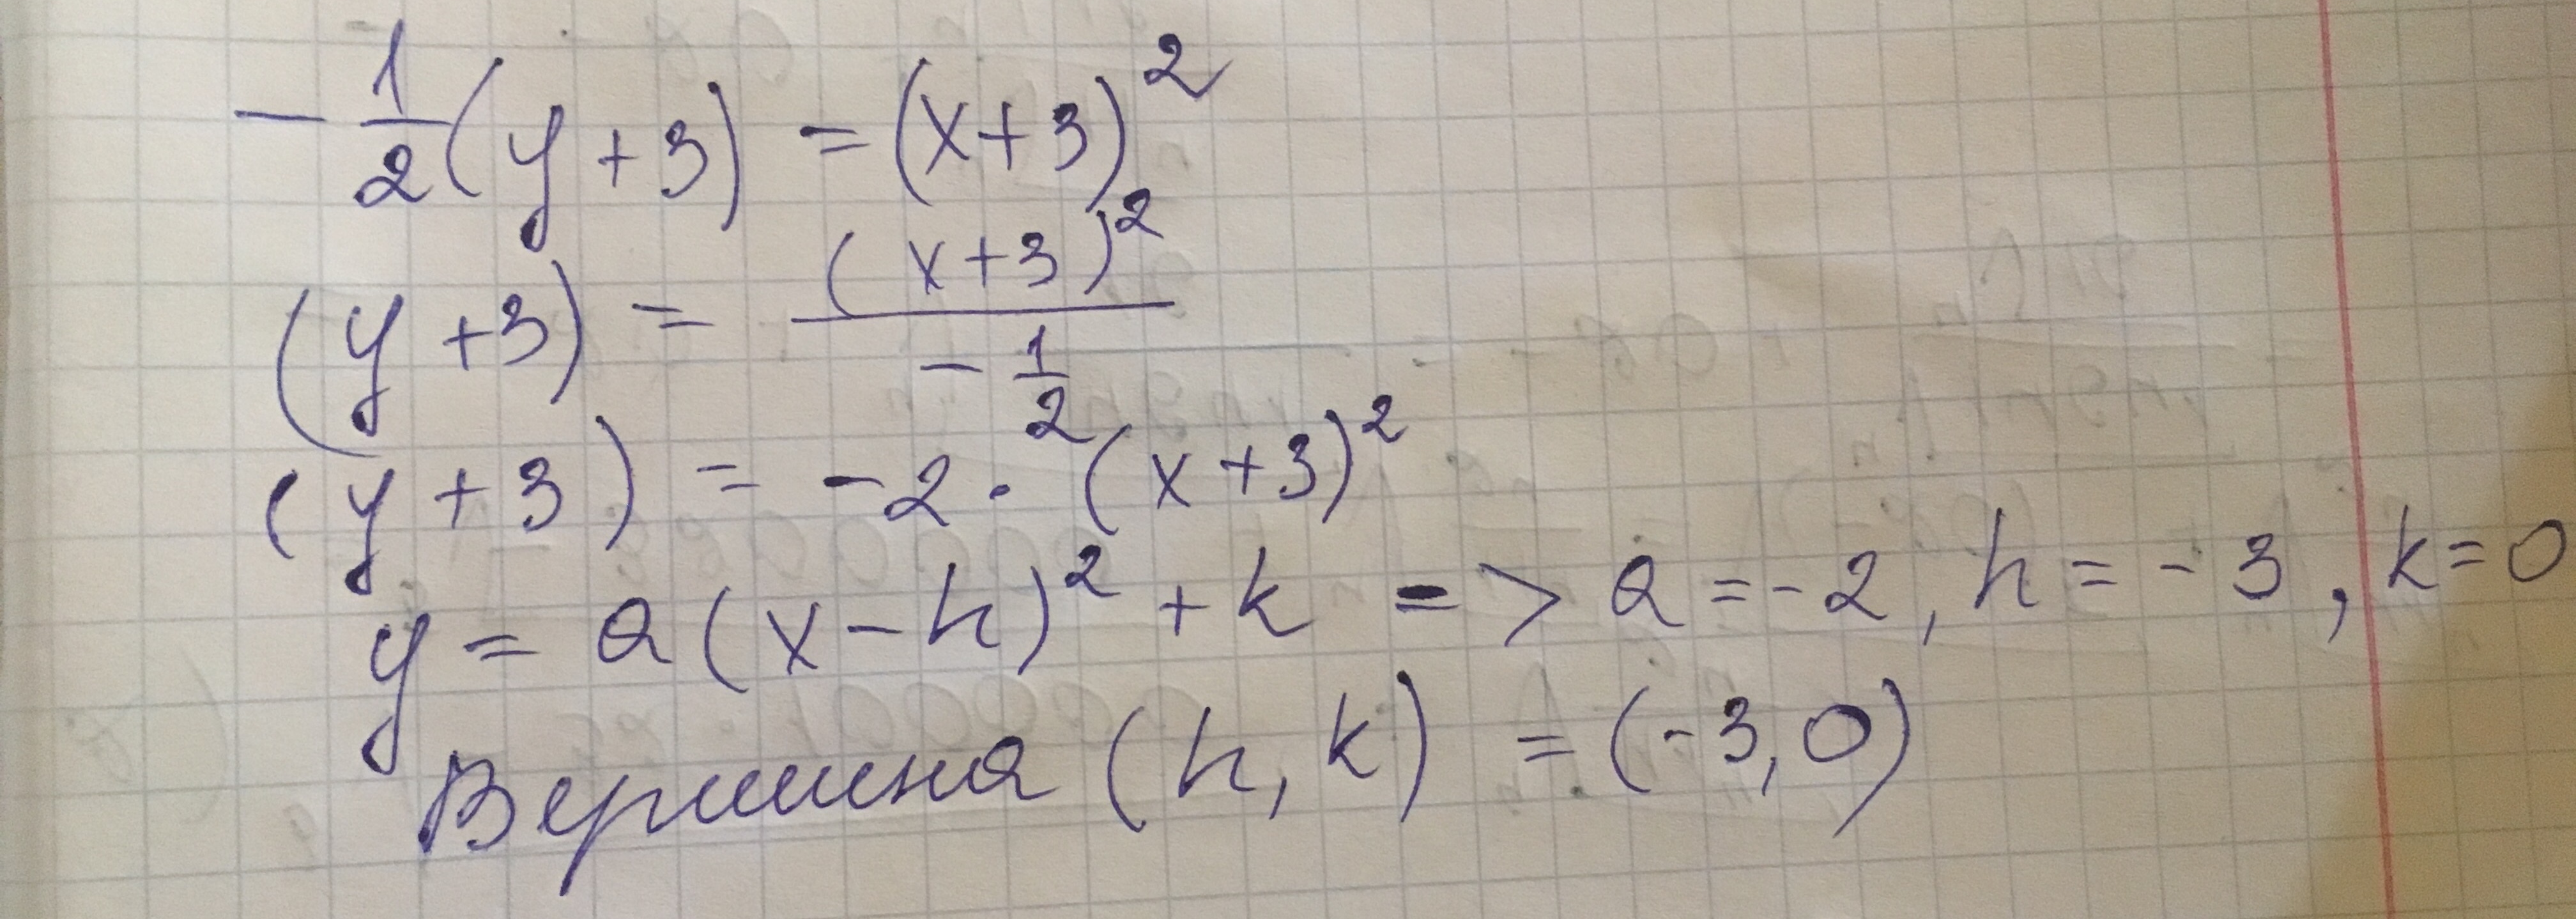 -1/2(y+3) = (x+3)²
(y+3) = (x+3)²/(-1/2)
(y+3) = -2·(x+3)²
y = a(x-h)² + k => a=-2, h=-3, k=0
Вершина (h, k) = (-3, 0)